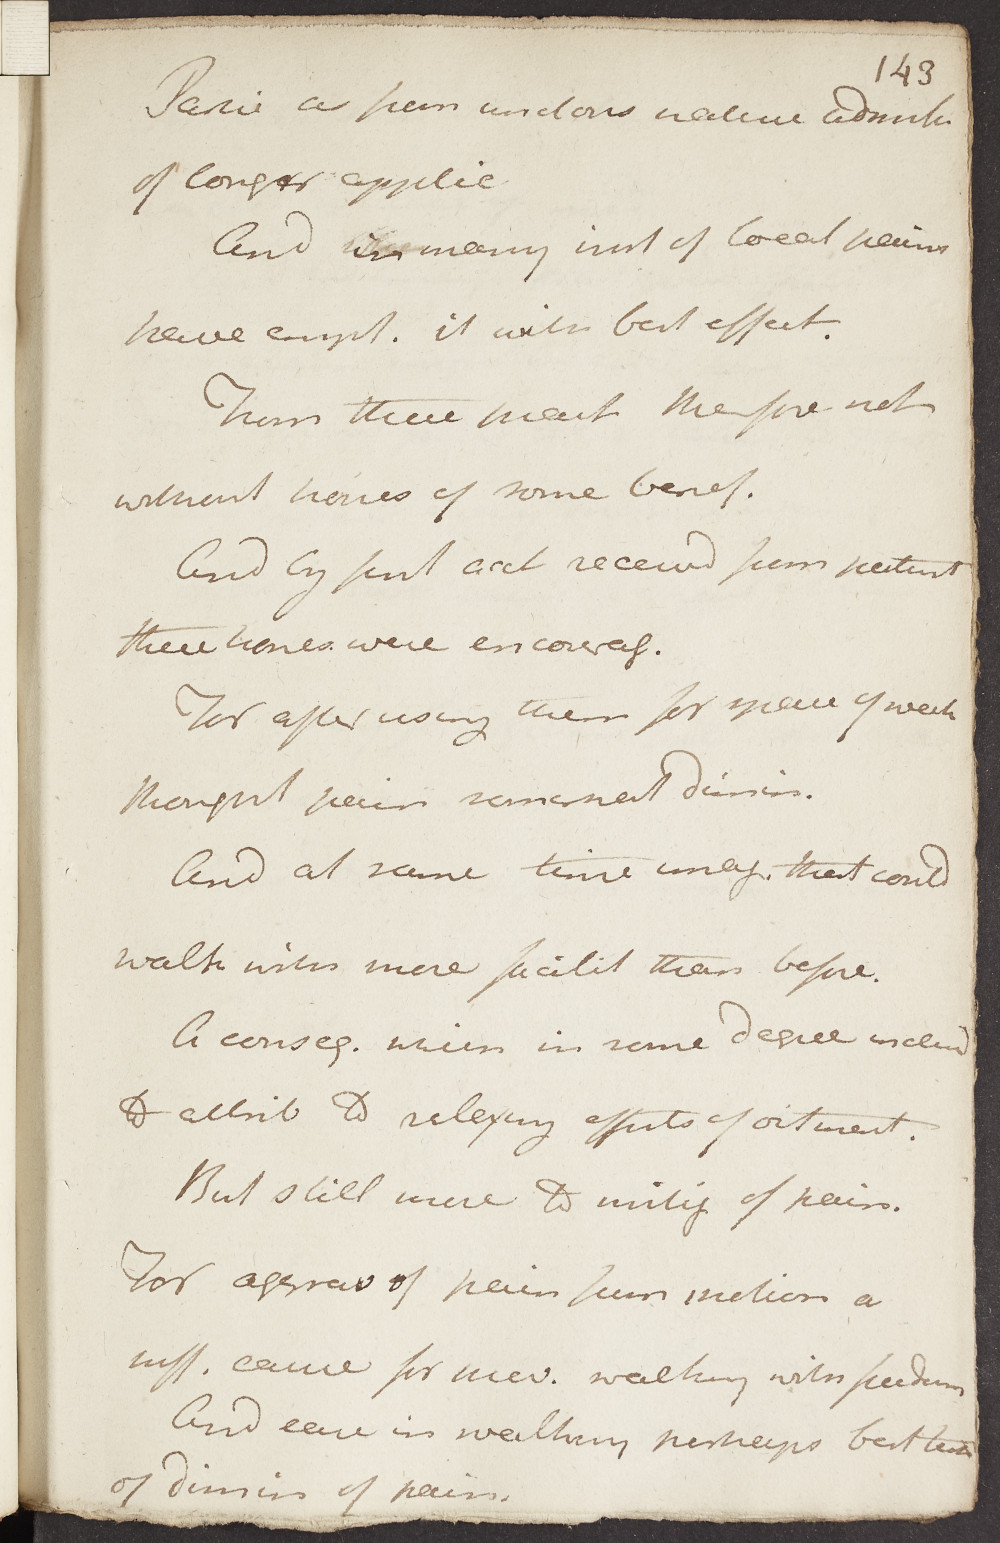 143
as from unctuous nature admits
of longer applic
And in many inst of local pains
have empl. it with best effect.
From these meant therefore not
without hopes of some benef.
And by first acct received from patient
these hopes were encourag.
For after using them for space of week
thought pain somewhat dimin.
And at same time imag. that could
walk with more facilit than before.
A conseq. which in some degree inclind
to attrib to relaxing effects of ointment.
But still more to mitig of pain.
For aggrav of pain from motion a
suff. cause for prev. walking with freedom
And ease in walking perhaps best test
of dimin of pain.